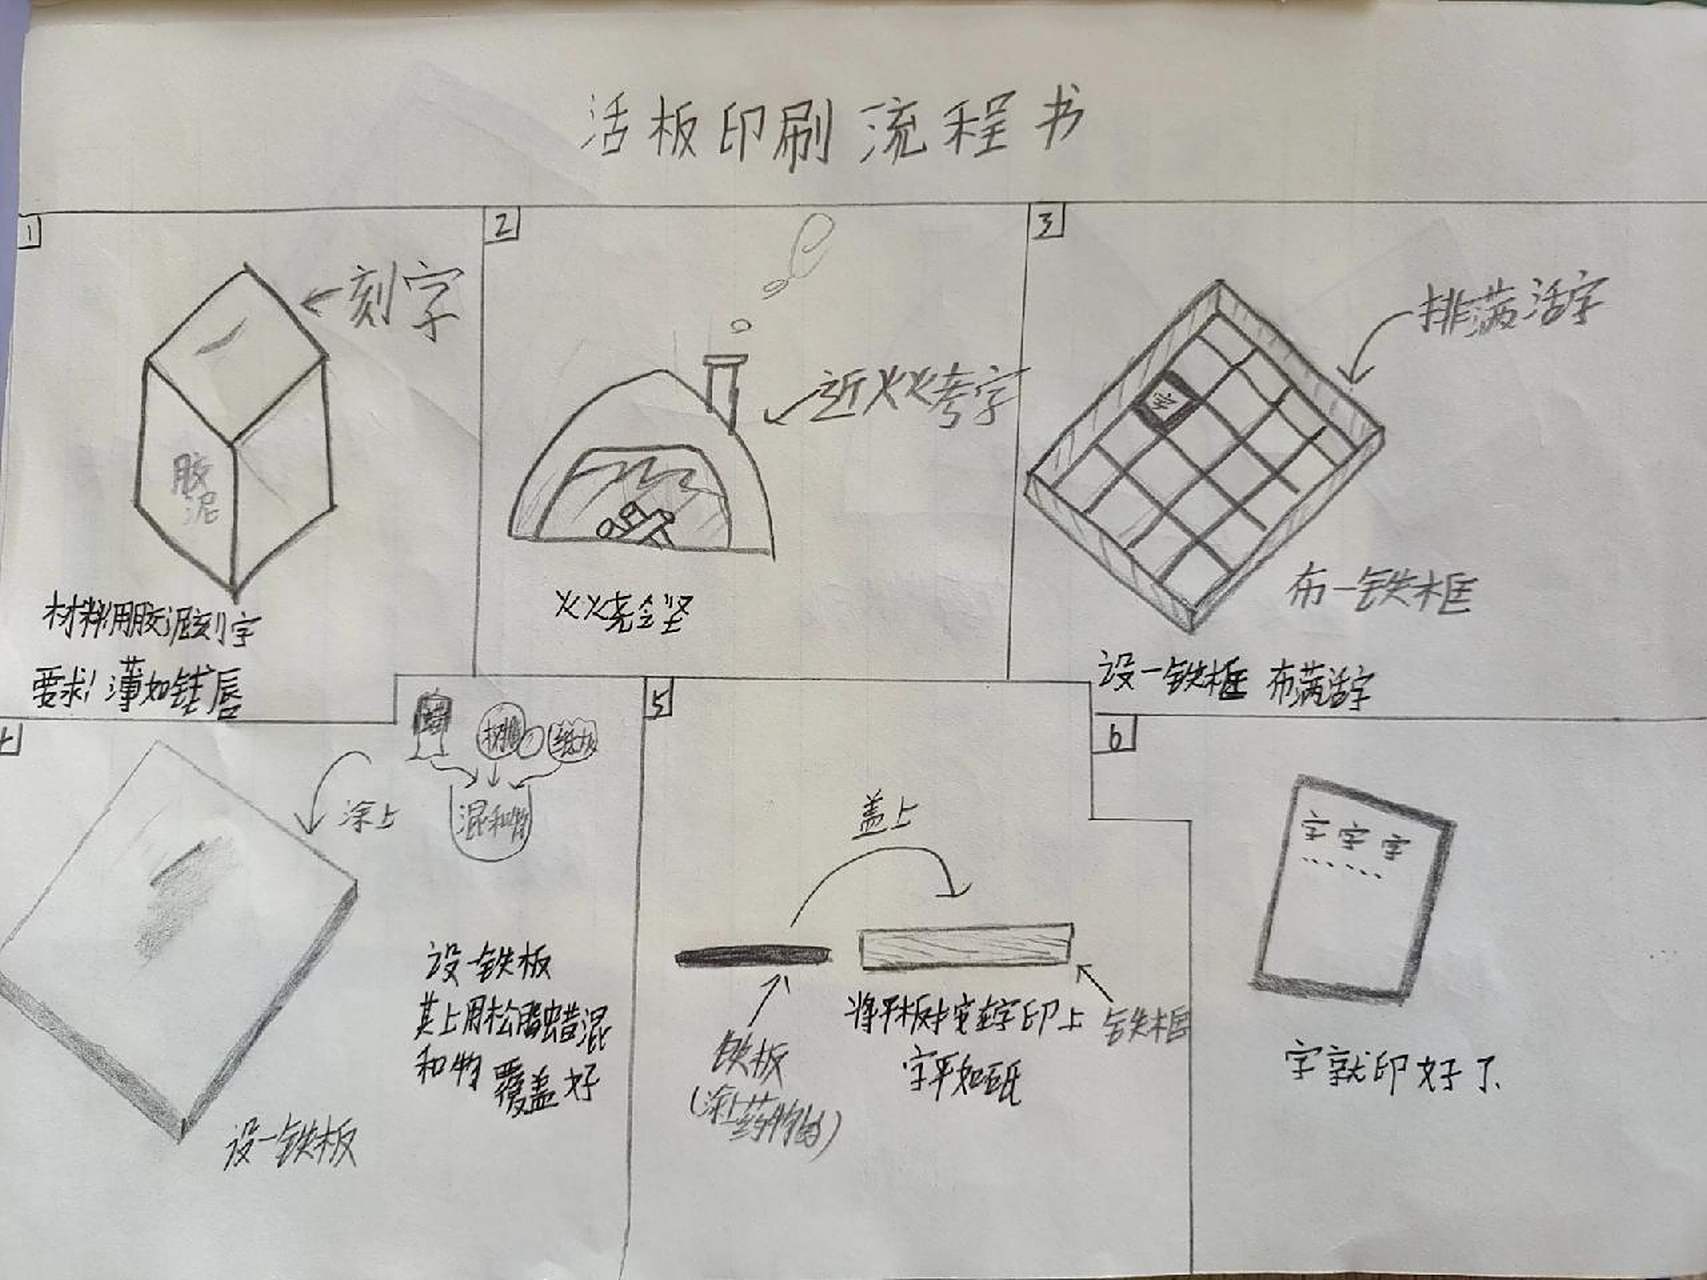 活板印刷流程书
1
刻字
胶
泥
材料用胶泥刻字
要求！薄如钱唇
2
近火烤字
火烧令坚
3
排满活字
字
布一铁框
设一铁框 布满活字
4
涂上
蜡
树脂
纸灰
混和物
设一铁板
其上用松脂蜡混
和物 覆盖好
设一铁板
5
盖上
铁板
(涂上药物的)
将平板按在字印上
字平如砥
铁框
6
字字字
.....
字就印好了